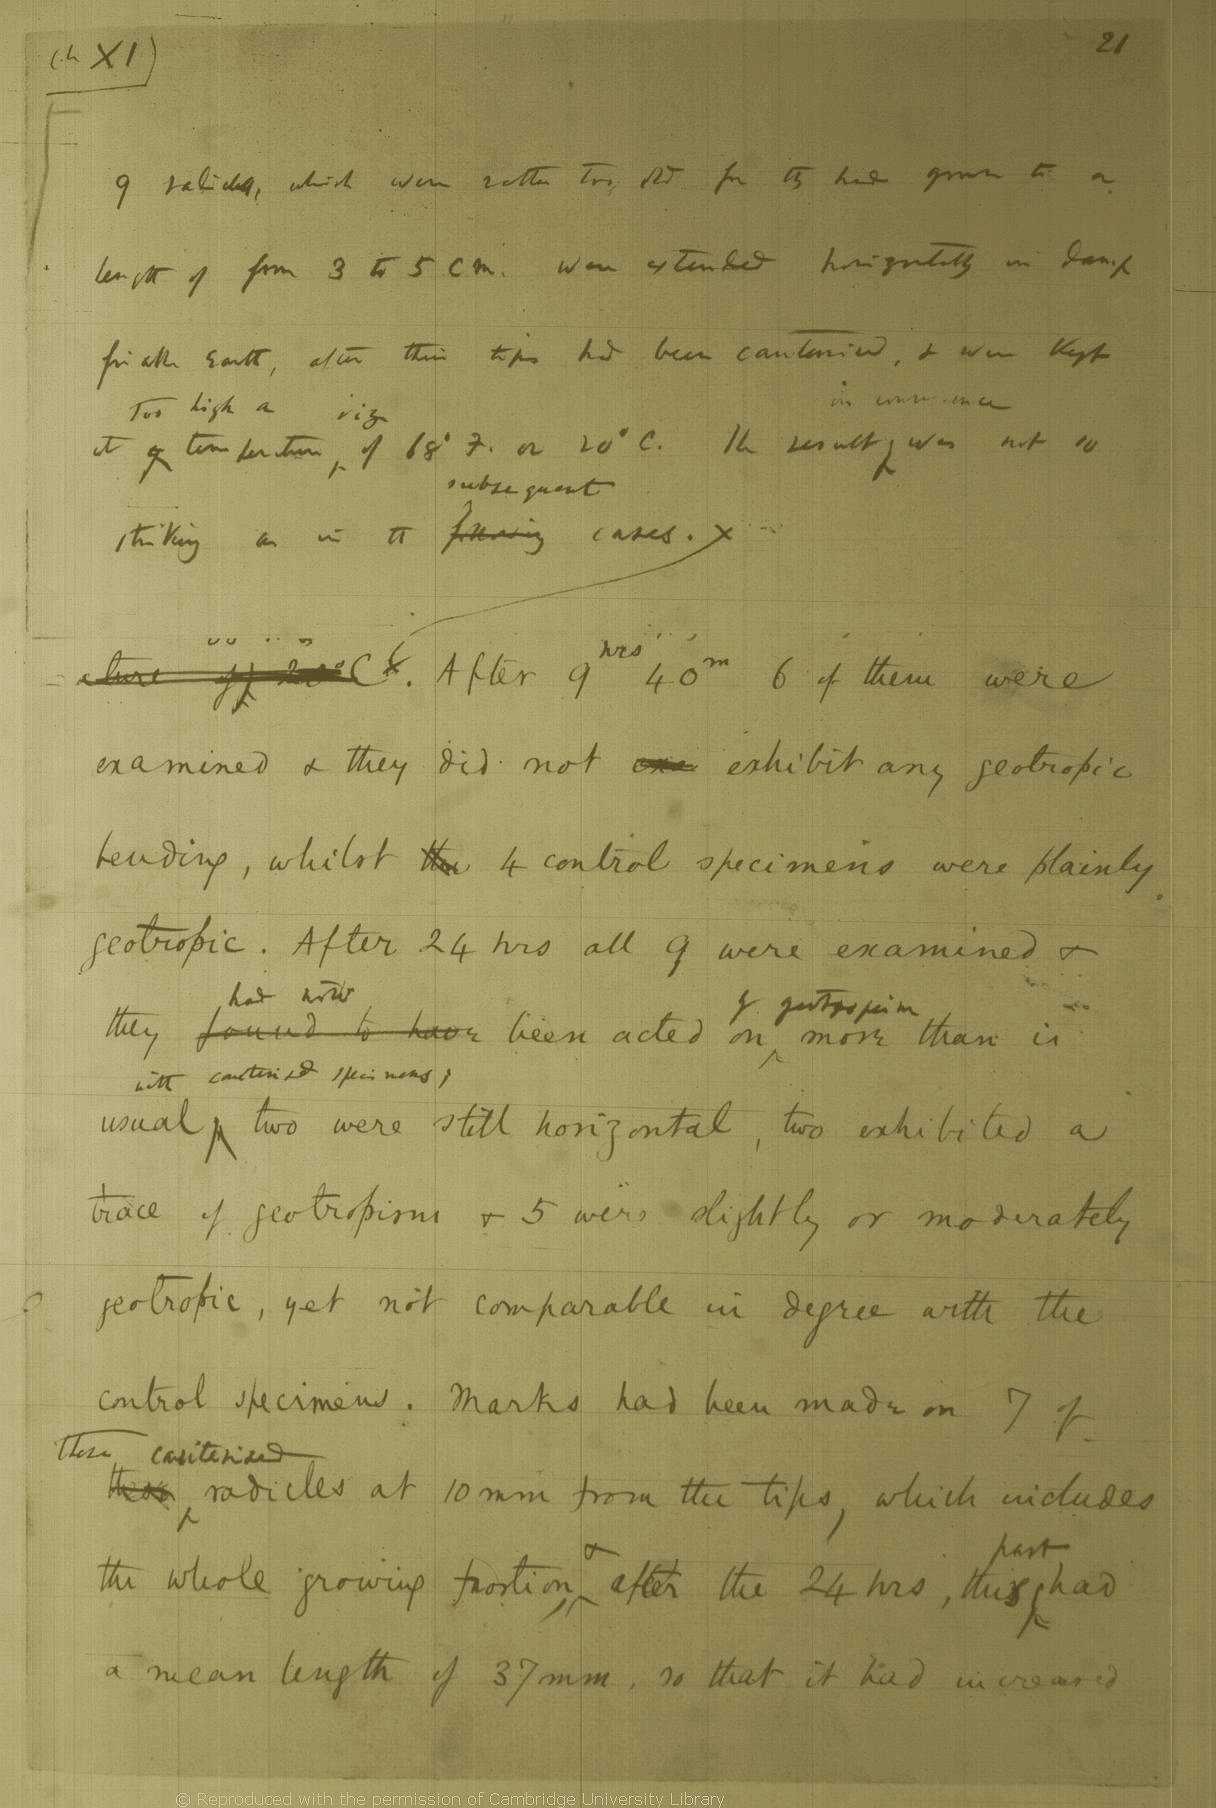 (Ch XI)
21
9 radicles, which were rather too old for they had grown to a
length of from 3 to 5 cm. were extended horizontally in damp
friable Earth, after their tips had been cauterised, & were kept
too high a viz in consequence
at a temperature, of 68° F. or 20° C. The result, was not so
subsequent
striking as in the following cases. x
ature of 20° C x. After 9 hrs 40 m 6 of them were
examined & they did not exa exhibit any geotropic
bending, whilst the 4 control specimens were plainly
geotropic. After 24 hrs all 9 were examined &
had now by geotropism
they found to have been acted on more than is
with cauterised specimens;
usual two were still horizontal, two exhibited a
trace of geotropism & 5 were slightly or moderately
geotropic, yet not comparable in degree with the
control specimens. Marks had been made on 7 of
these cauterised
radicles at 10 mm from the tips, which includes
& part
the whole growing portion, after the 24 hrs, this had
a mean length of 37 mm, so that it had increased
© Reproduced with the permission of Cambridge University Library